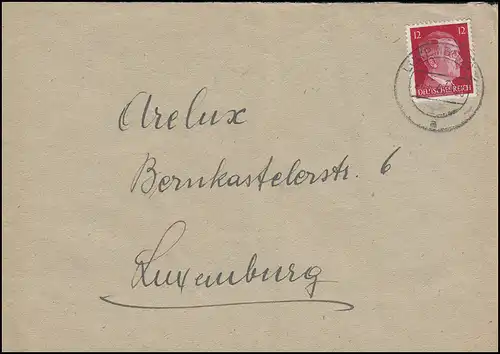 12 12
DEUTSCHES REICH
a
Arelux
Bernkastelerstr. 6
Luxemburg